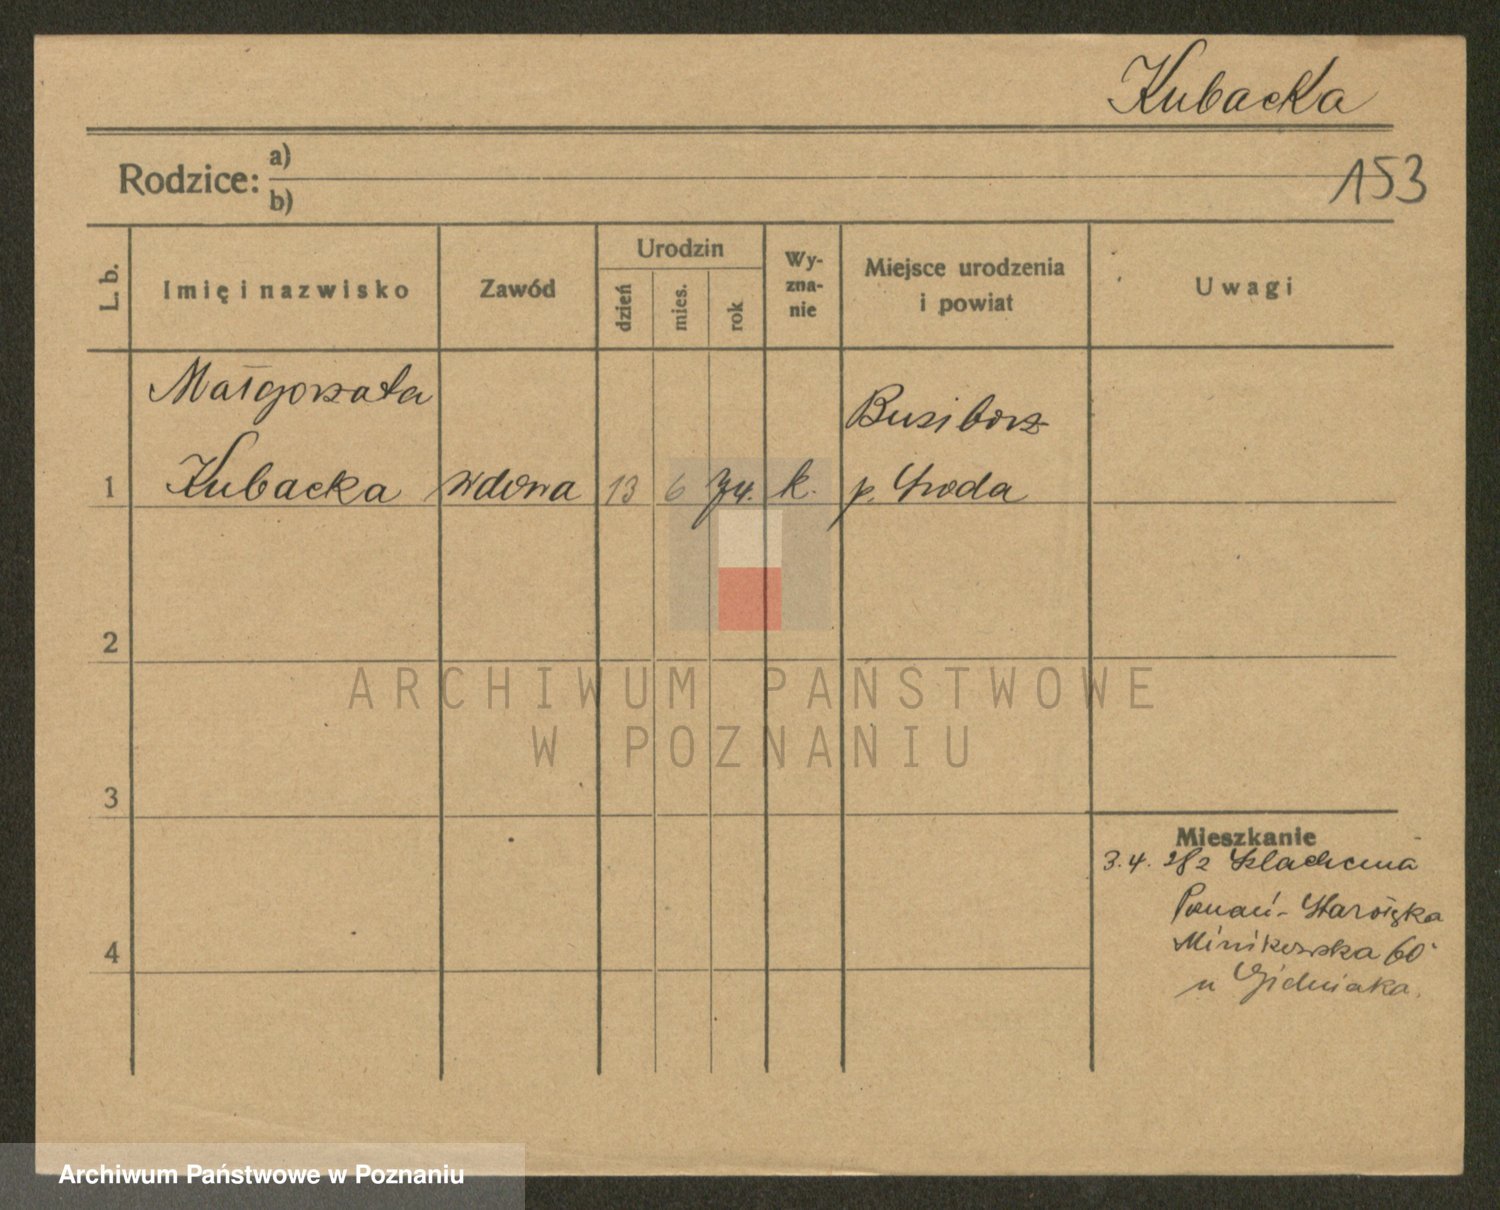 Kubacka
Rodzice: a)
b)
153
L. b.
Imię i nazwisko
Zawód
Urodzin
dzień
mies.
rok
Wy-
zna-
nie
Miejsce urodzenia
i powiat
Uwagi
Małgorzata
Busiborz
1 Kubacka wdowa 13 6 74. k. p. Środa
2
3
4
Mieszkanie
3.4. 282 Szlachcina
Poznań - Starołęka
Minikowska 60
u Gidniaka.
ARCHIWUM PAŃSTWOWE
W POZNANIU
Archiwum Państwowe w Poznaniu